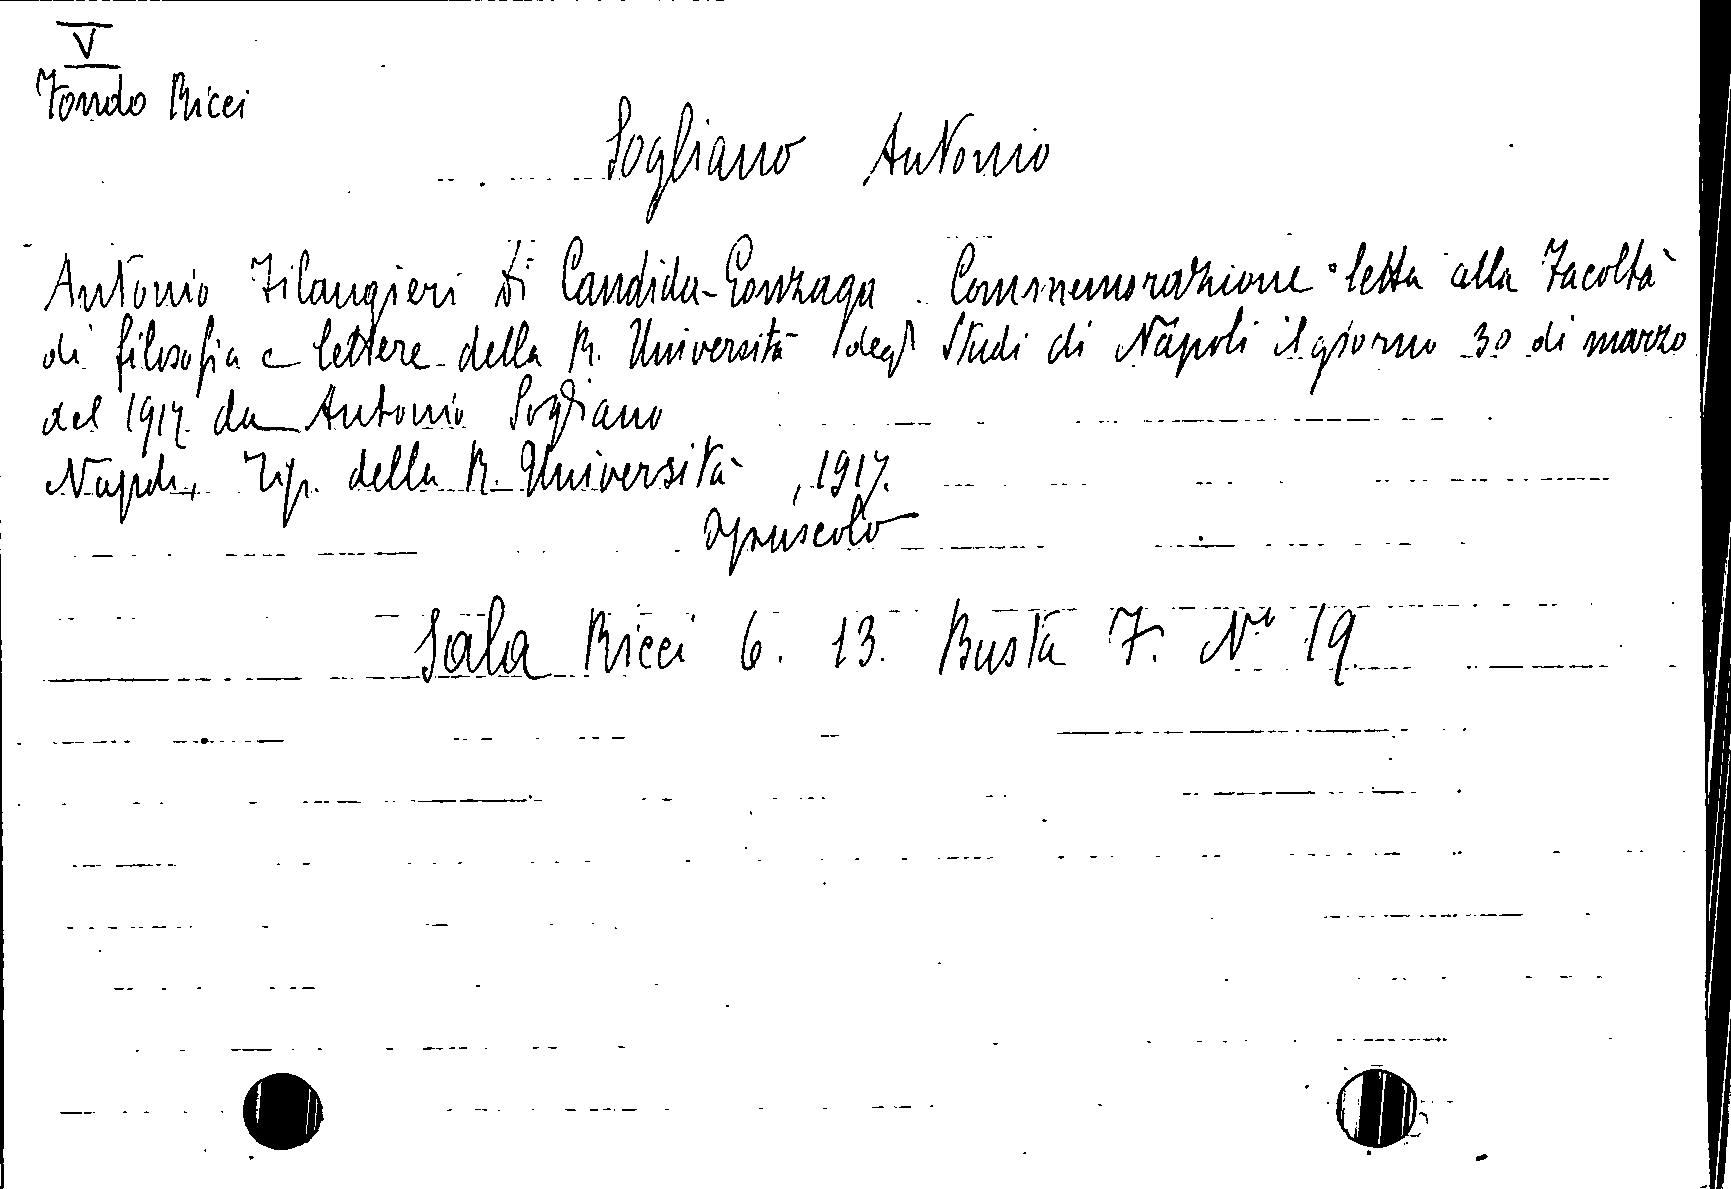 V
Fondo Ricci
Sogliano Antonio
Antonio Filangieri di Candida-Gonzaga. Commemorazione letta alla Facoltà
di filosofia e lettere della R. Università degl Studi di Napoli il giorno 30 di marzo
del 1917 da Antonio Sogliano
Napoli, Tip. della R. Università, 1917.
opuscolo
Sala Ricci 6. 13. Busta 7. N° 19